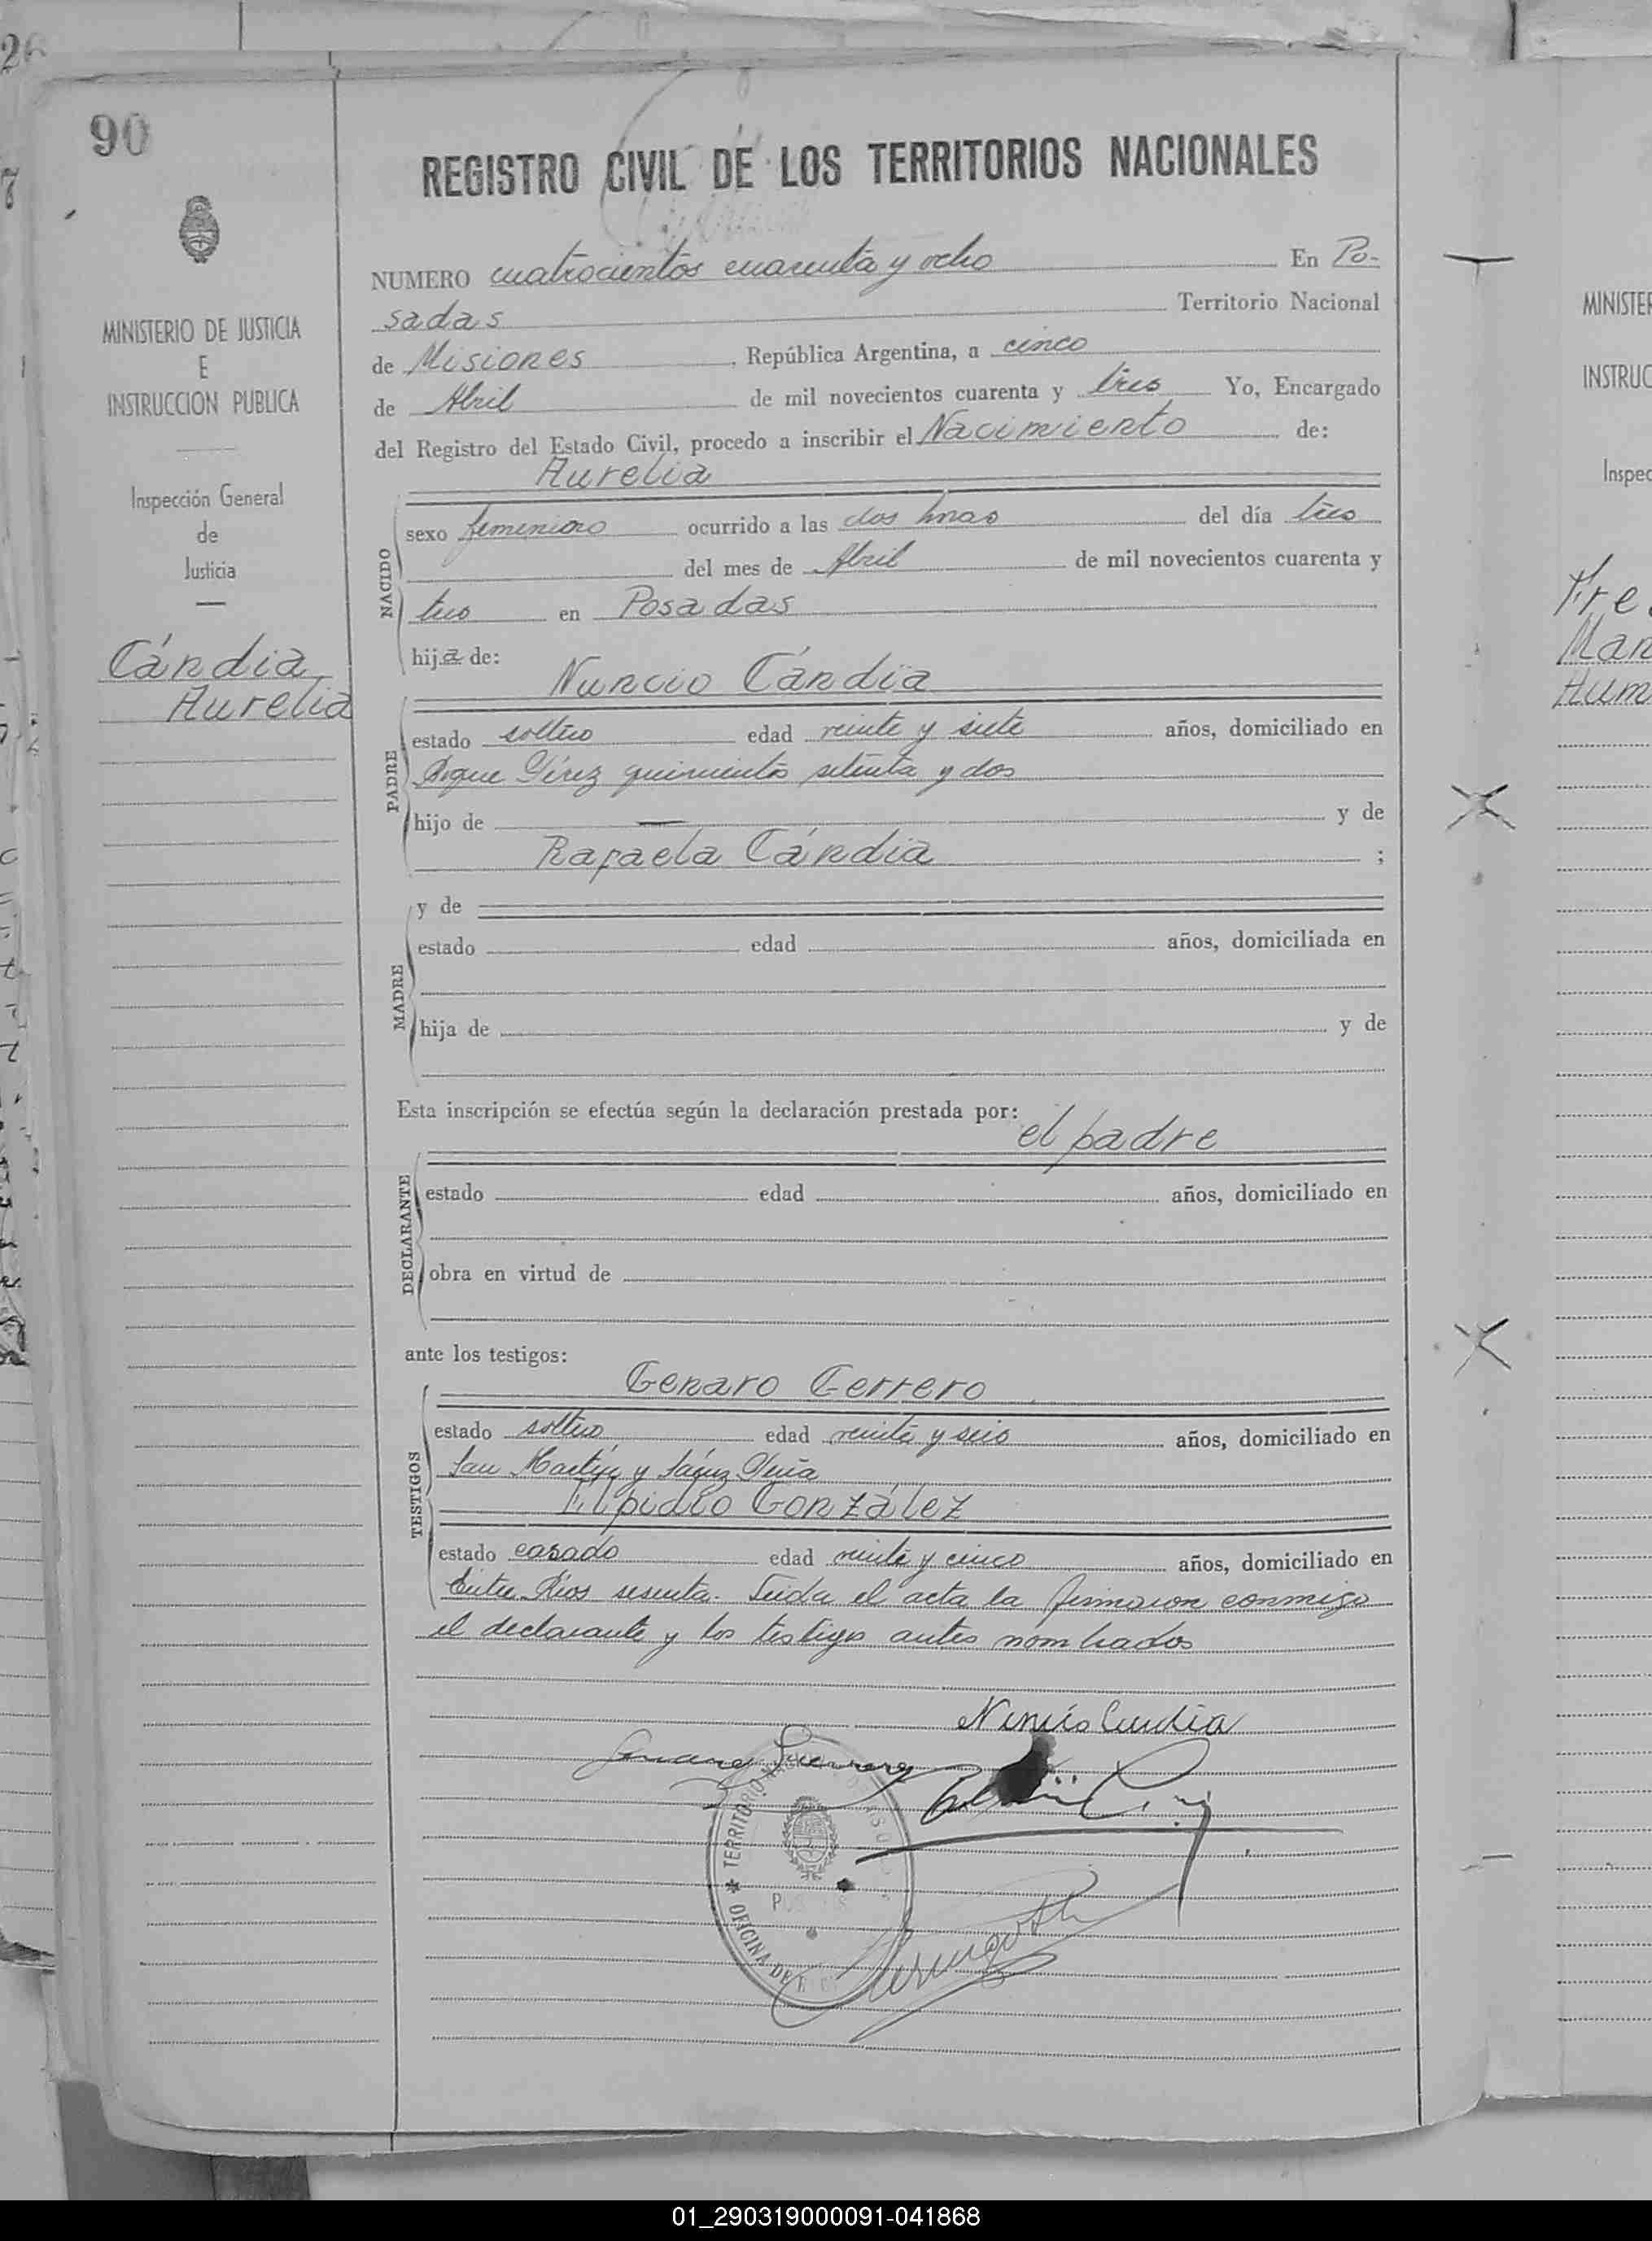 26
90
REGISTRO CIVIL DE LOS TERRITORIOS NACIONALES
MINISTERIO DE JUSTICIA
E
INSTRUCCION PUBLICA
Inspección General
de
Justicia
Cándia
Aurelia
NUMERO cuatrocientos cuarenta y ocho En Po-
sadas Territorio Nacional
de Misiones, República Argentina, a cinco
de Abril de mil novecientos cuarenta y tres Yo, Encargado
del Registro del Estado Civil, procedo a inscribir el Nacimiento de:
Aurelia
NACIDO
sexo femenino ocurrido a las dos horas del día tres
del mes de Abril de mil novecientos cuarenta y
tres en Posadas
hija de:
Nuncio Cándia
PADRE
estado soltero edad veinte y siete años, domiciliado en
Roque Pérez quinientos setenta y dos
hijo de — y de
Rafaela Cándia ;
MADRE
y de
estado edad años, domiciliada en
hija de y de
Esta inscripción se efectúa según la declaración prestada por:
el padre
DECLARANTE
estado edad años, domiciliado en
obra en virtud de
ante los testigos:
Genaro Gerrero
TESTIGOS
estado soltero edad veinte y seis años, domiciliado en
San Martín y Sáenz Peña
Elpidio González
estado casado edad veinte y cinco años, domiciliado en
Entre Ríos sesenta. Leída el acta la firmaron conmigo
el declarante y los testigos antes nombrados
Candia
TERRITORIO
OFICINA DE
MINISTER
INSTRUC
Inspec
01_290319000091-041868